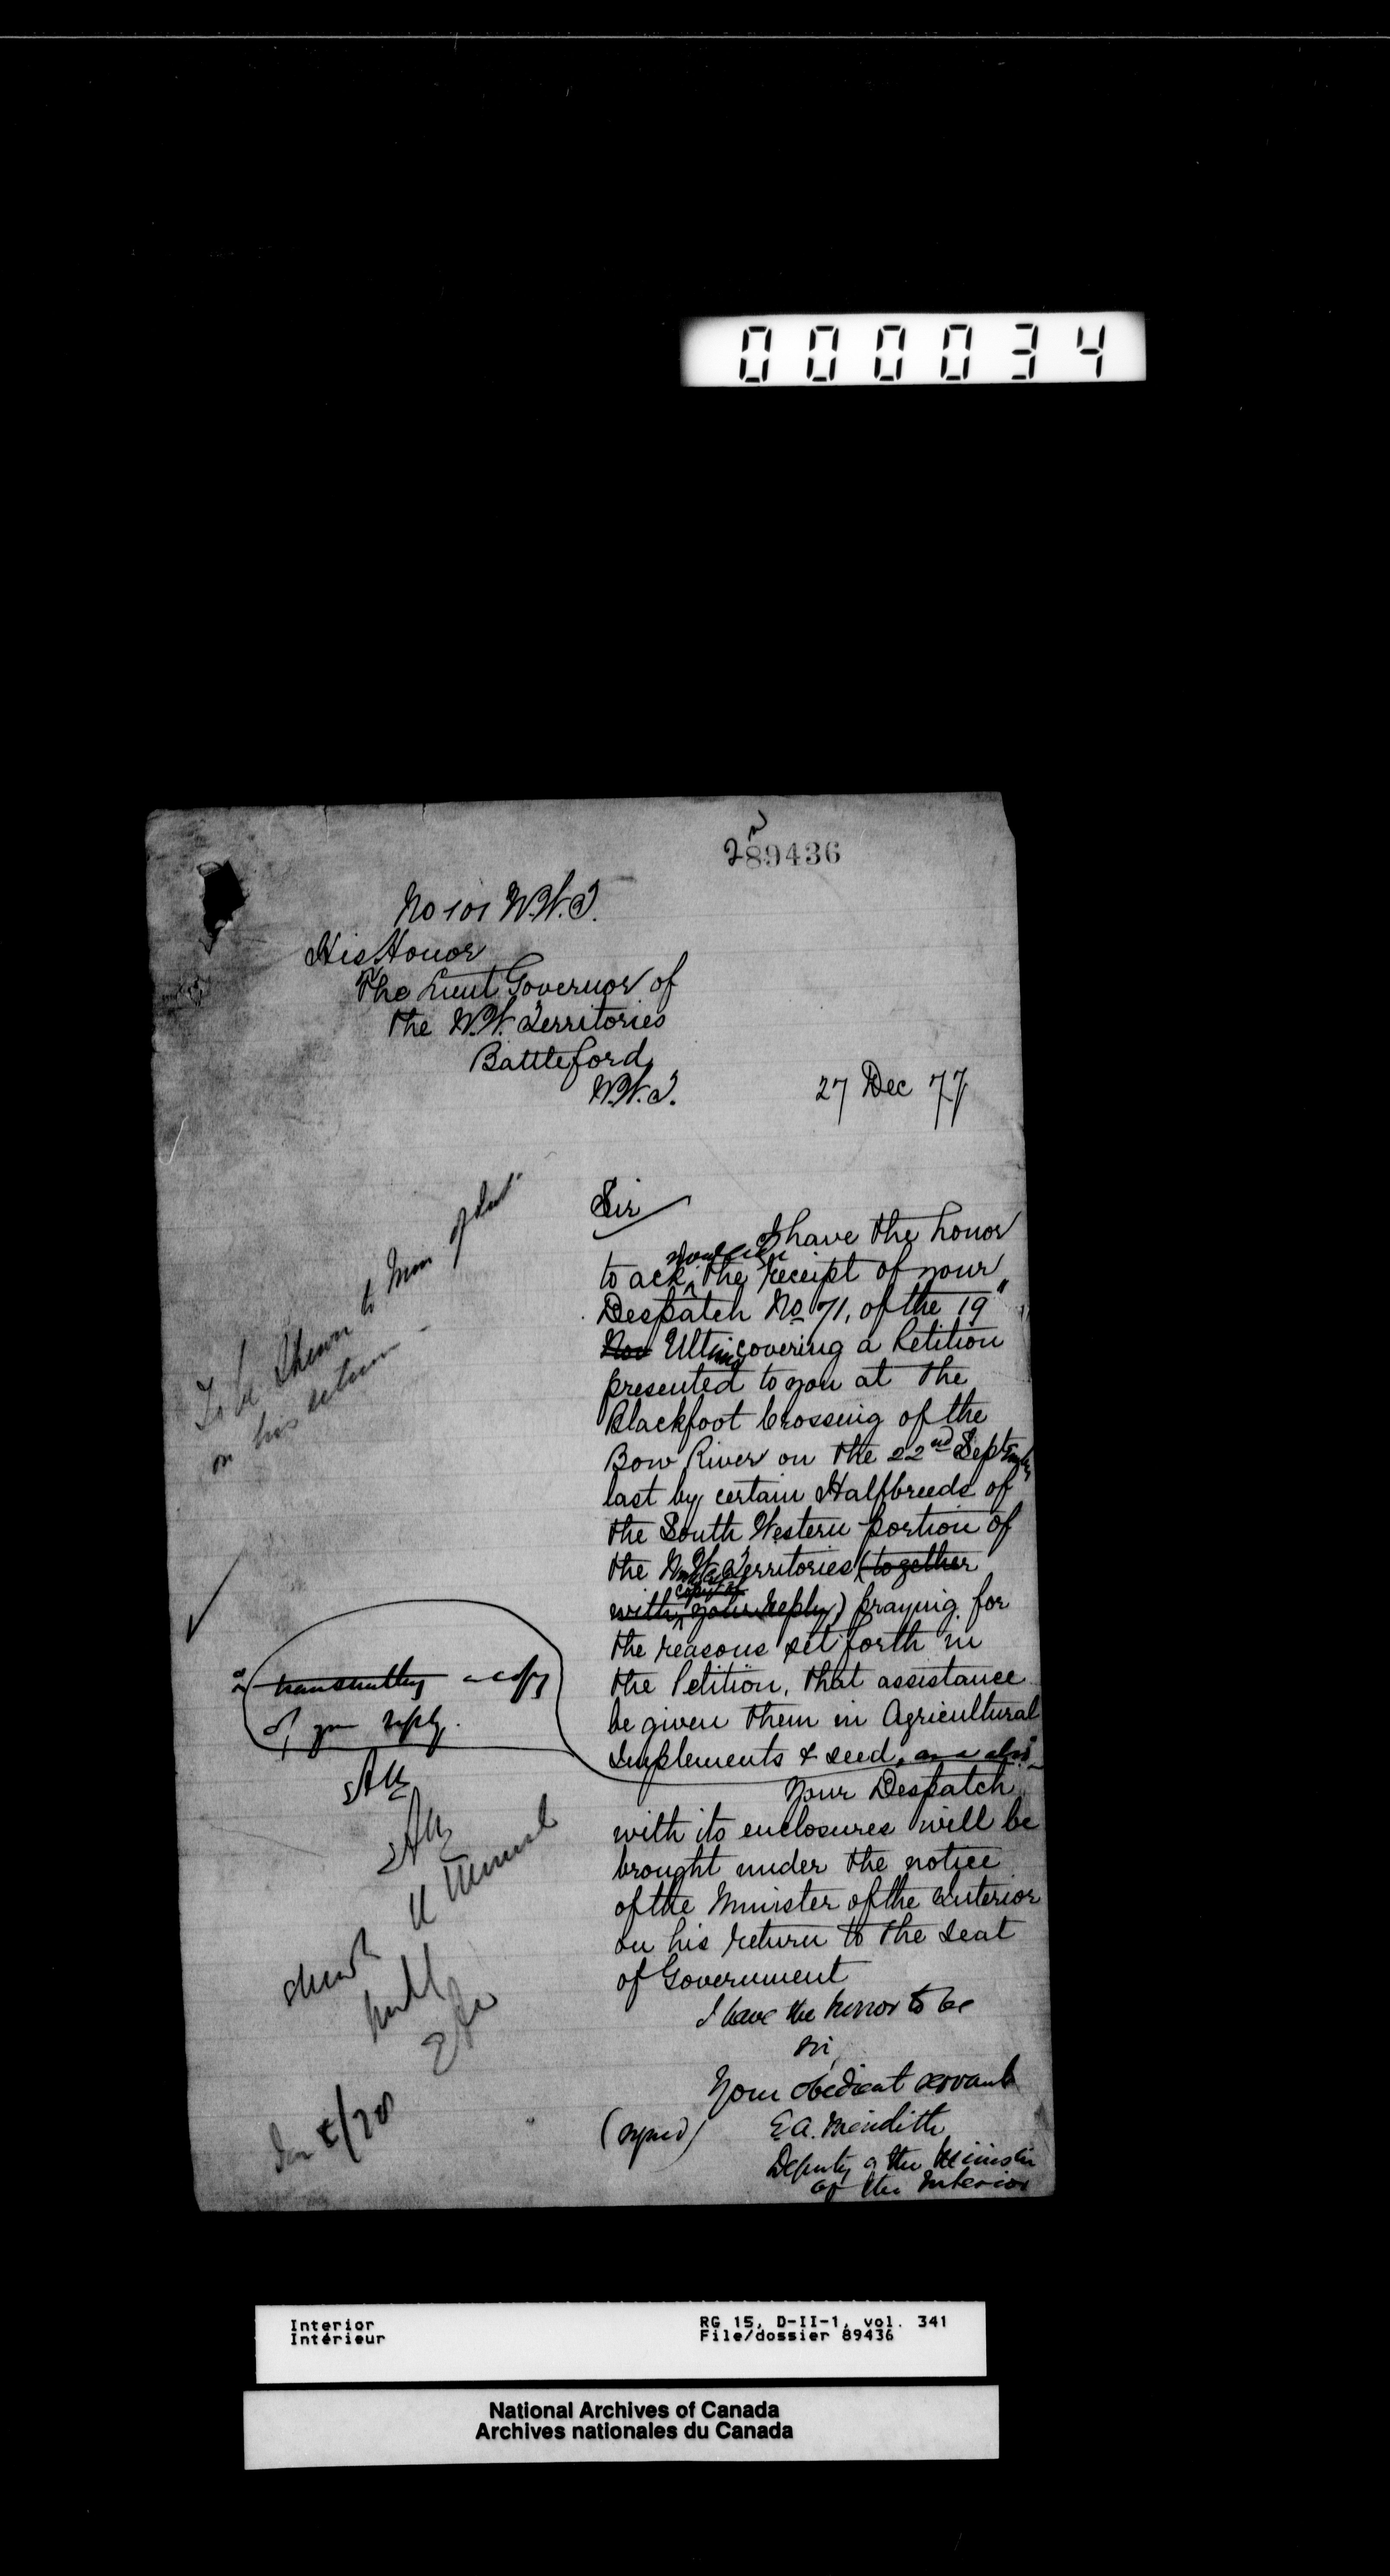 000034
289436
No 101 N.W.T.
His Honor
The Lieut Governor of
the N.W. Territories
Battleford
N.W.T.
27 Dec 77
To be Shewn to Min of Int
on his return
Sir
I have the honor
to acknowledge the receipt of your
Despatch No 71, of the 19"
Nov Ultimo covering a Petition
presented to you at the
Blackfoot Crossing of the
Bow River on the 22nd September
last by certain Halfbreeds of
the South Western portion of
the N.W. Territories (together
with copy of your reply) praying for
the reasons set forth in
the Petition, that assistance
be given them in Agricultural
Implements & seed, and also
transmitting a copy
of your reply.
Your Despatch
with its enclosures will be
brought under the notice
of the Minister of the Interior
on his return to the Seat
of Government
I have the honor to be
Sir,
Your obedient servant
(signed) E A. Meredith
Deputy of the Minister
of the Interior
Interior
Intérieur
RG 15, D-II-1, vol. 341
File/dossier 89436
National Archives of Canada
Archives nationales du Canada